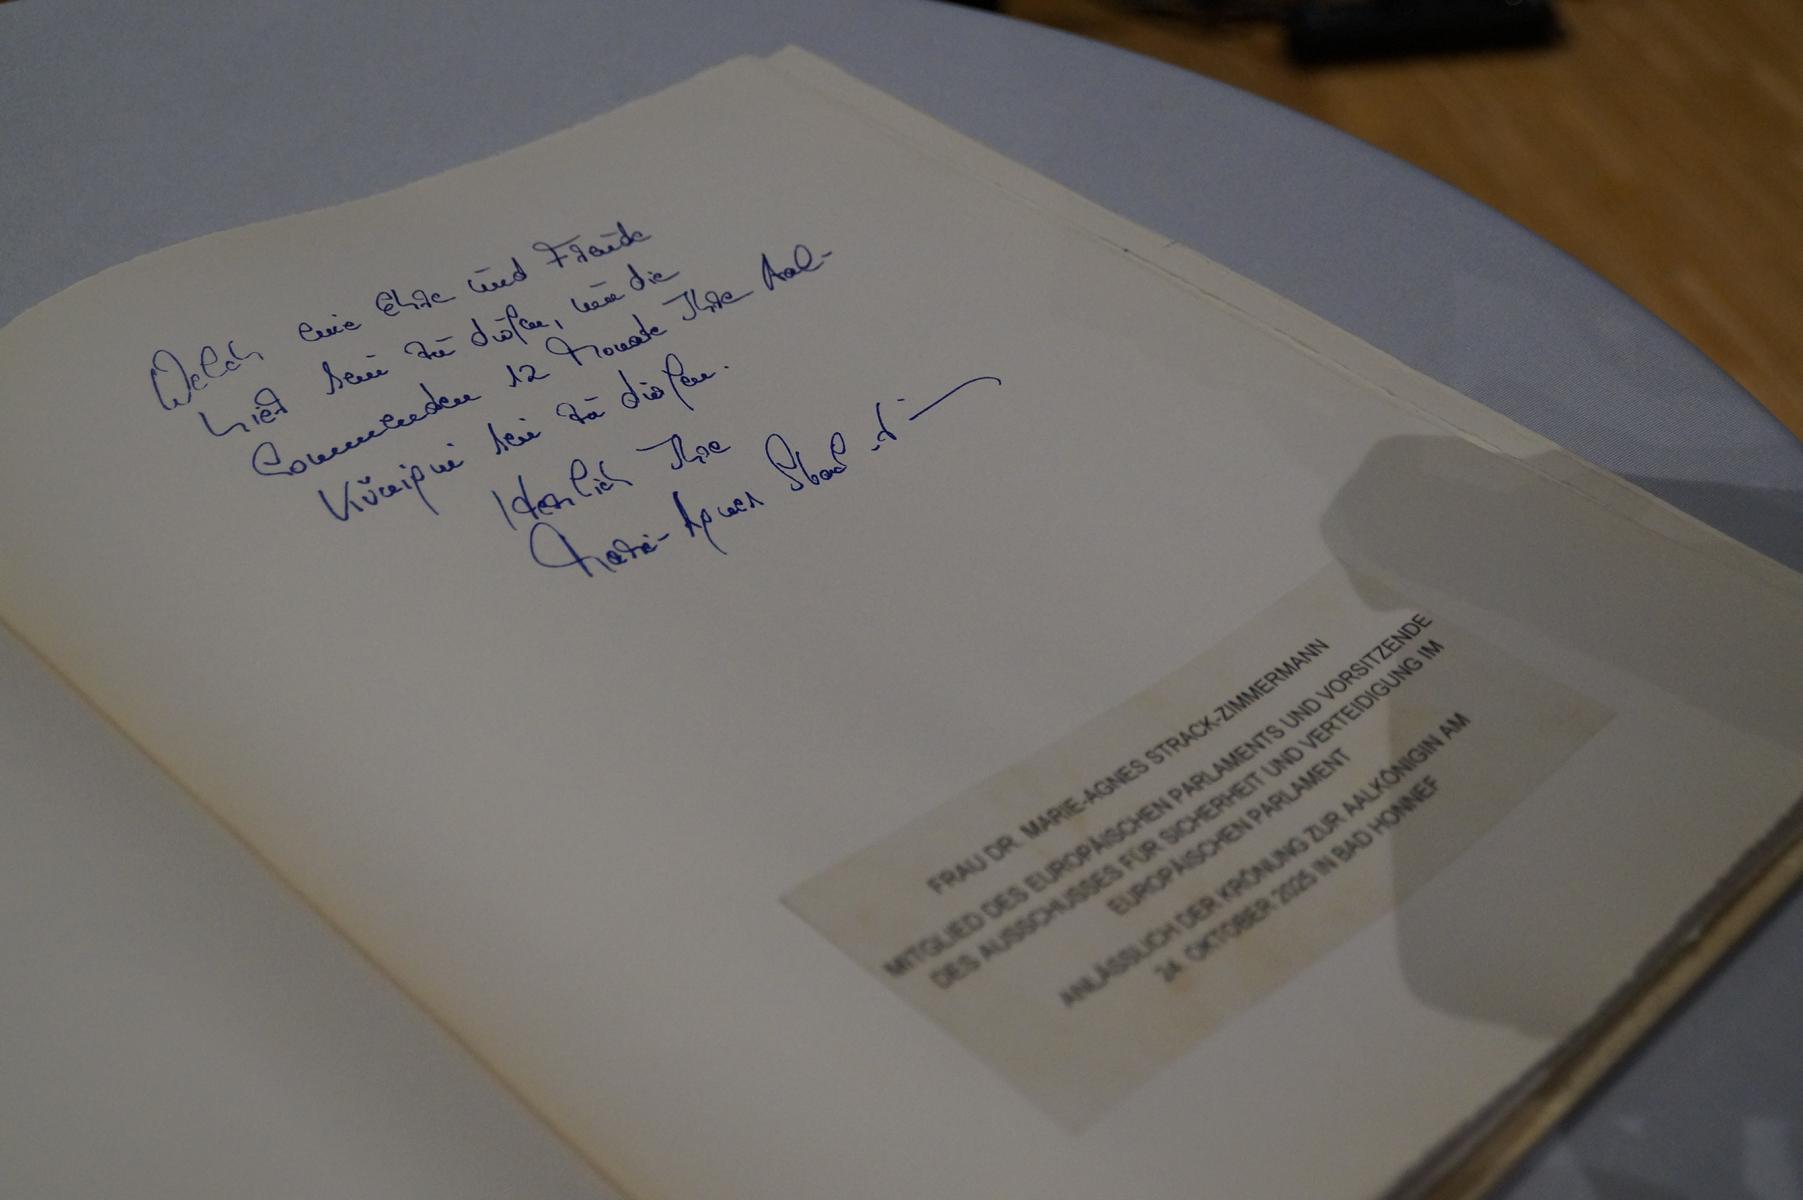 Welch eine Ehre und Freude
hier sein zu dürfen, um die
kommenden 12 Monate Ihre Aal-
Königin sein zu dürfen.
Herzlich Ihre
Marie-Agnes Strack-Zi
FRAU DR. MARIE-AGNES STRACK-ZIMMERMANN
MITGLIED DES EUROPÄISCHEN PARLAMENTS UND VORSITZENDE
DES AUSSCHUSSES FÜR SICHERHEIT UND VERTEIDIGUNG IM
EUROPÄISCHEN PARLAMENT
ANLÄSSLICH DER KRÖNUNG ZUR AALKÖNIGIN AM
24. OKTOBER 2025 IN BAD HONNEF